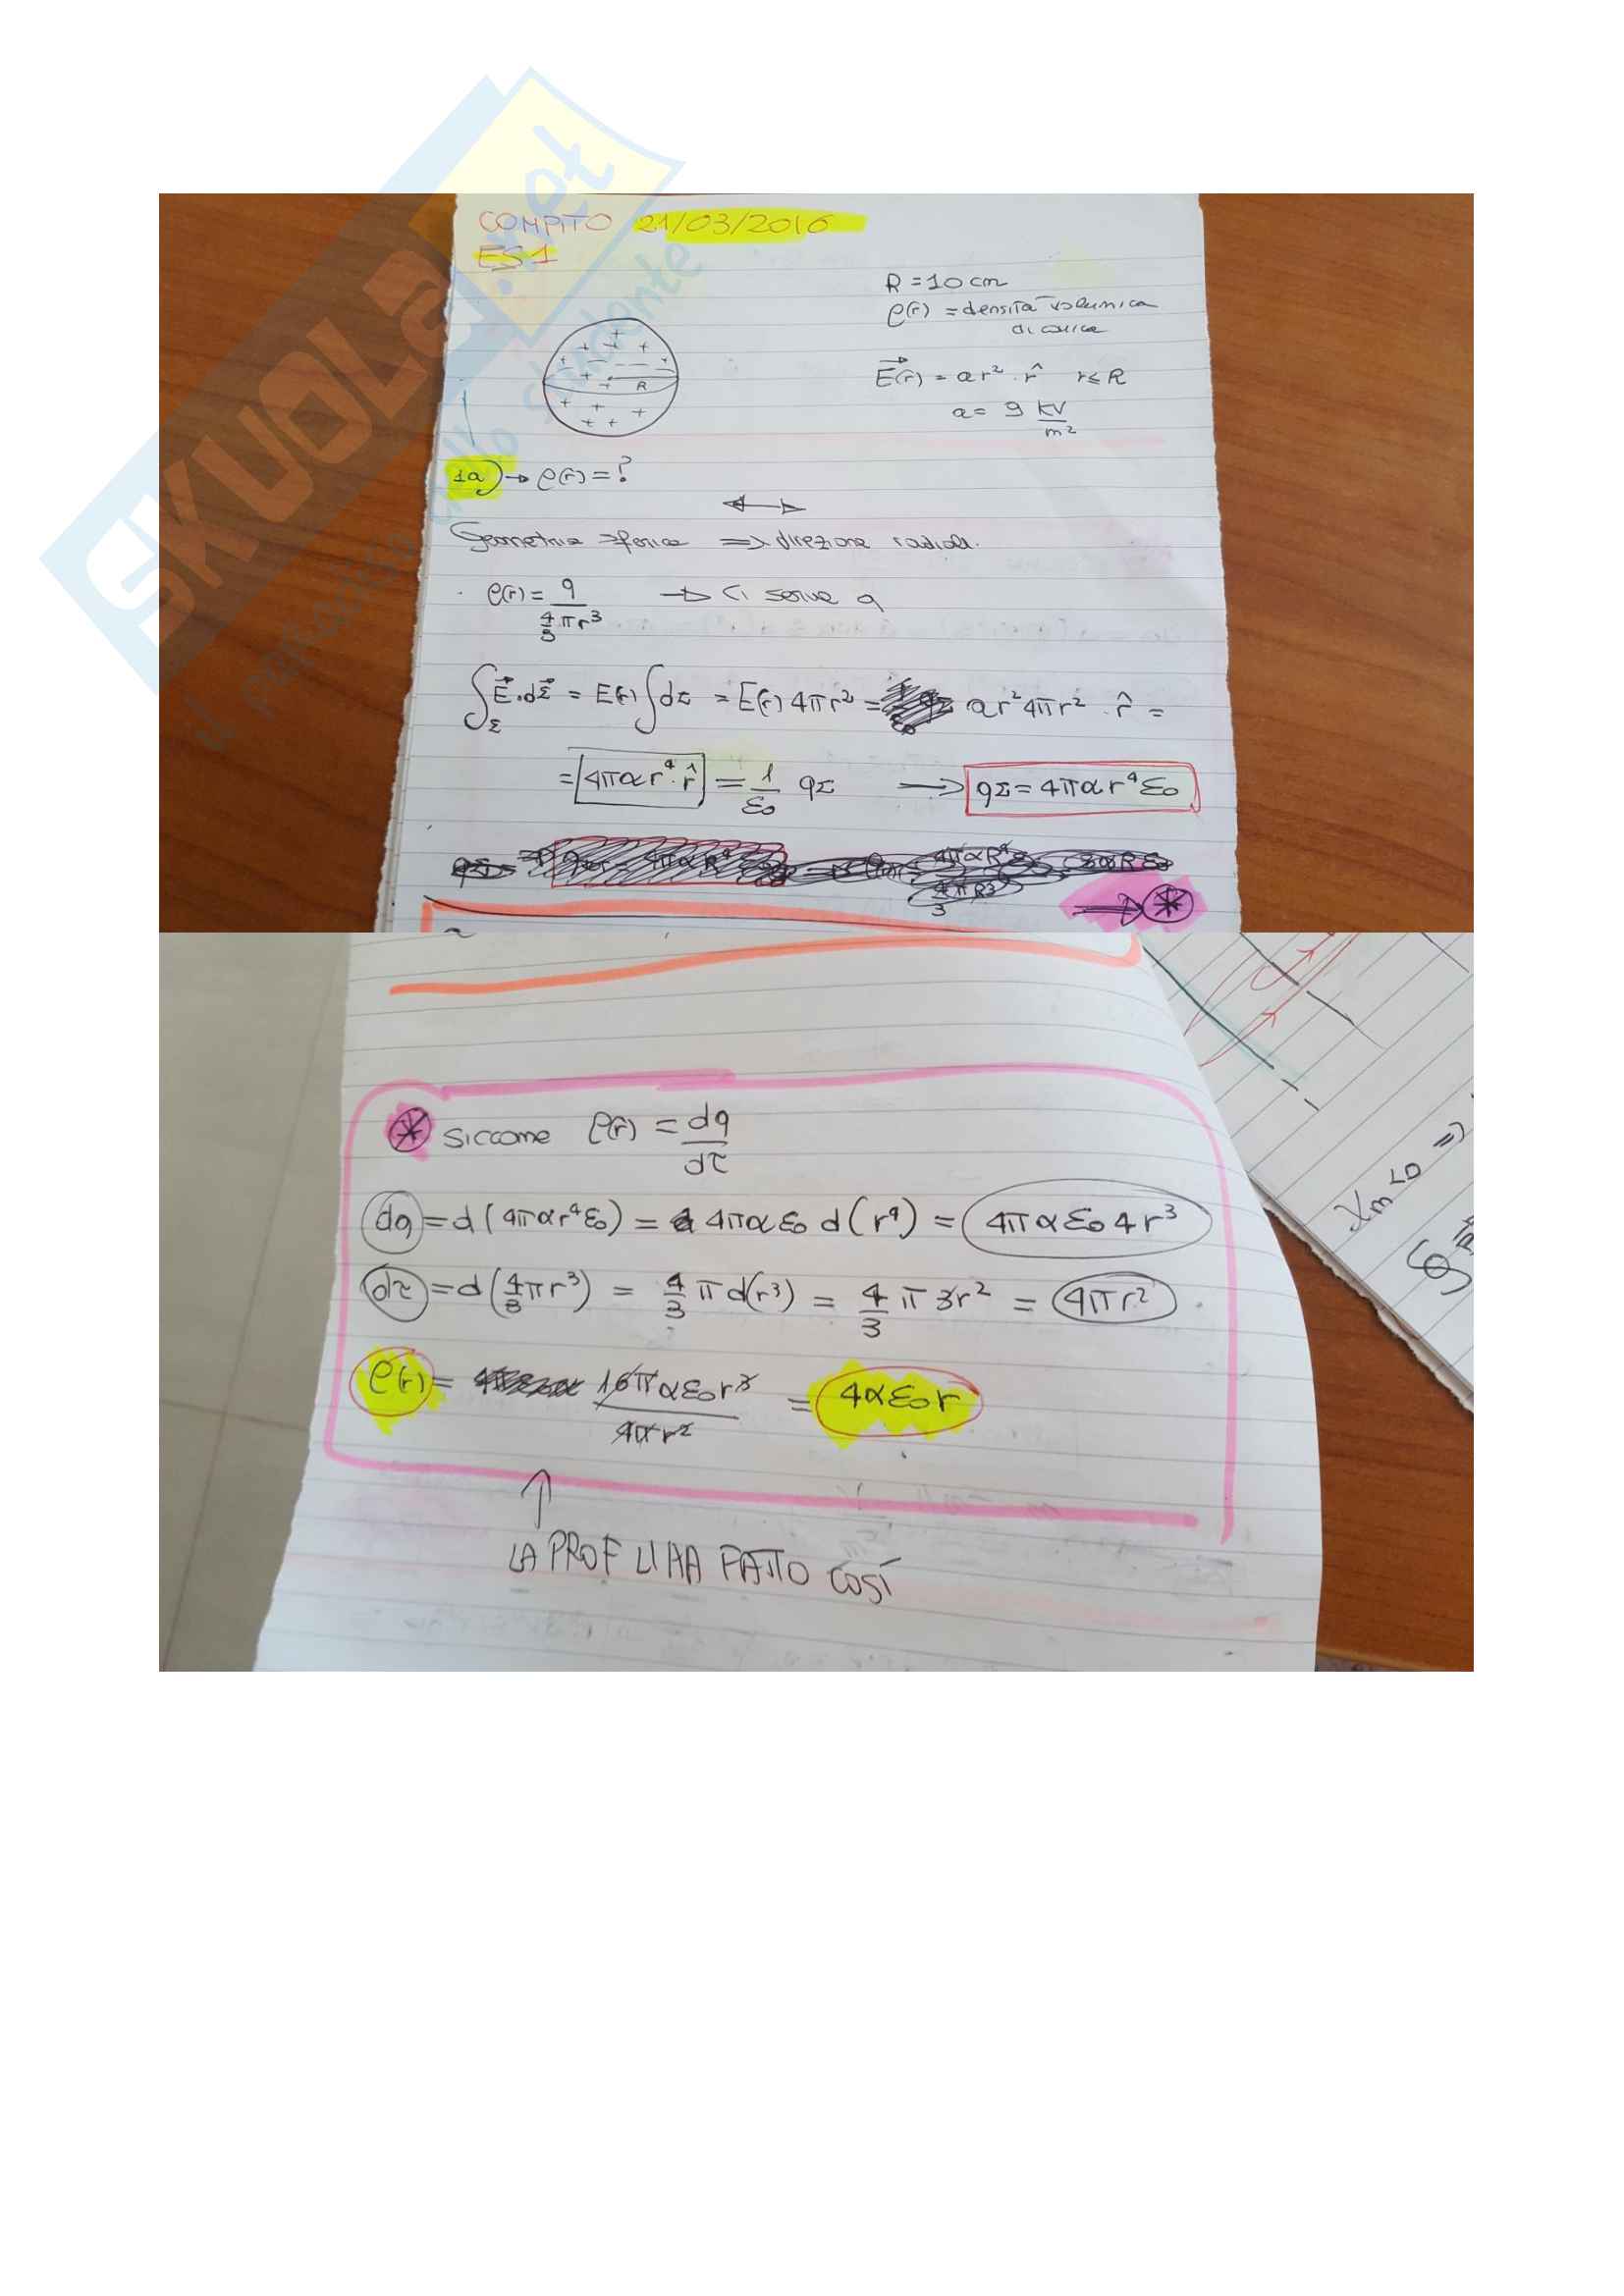 SKUOLA.net
il paradiso dello studente
COMPITO 21/03/2016
ES 1
R = 10 cm
ρ(r) = densità volumica
di carica
E(r) = α r² · r̂ r ≤ R
α = 9 kV/m²
+ + + + + + + + + + + + R
1a) → ρ(r) = ?
Geometria sferica ⇒ direzione radiale.
ρ(r) = q / (4/3 π r³) → Ci serve q
∫_Σ E · dΣ = E(r) ∫ dΣ = E(r) 4πr² = αr² 4πr² · r̂ =
= 4παr⁴ · r̂ = 1/ε₀ qΣ → qΣ = 4παr⁴ε₀
→ *
* siccome ρ(r) = dq/dτ
dq = d(4παr⁴ε₀) = 4παε₀ d(r⁴) = 4παε₀ 4r³
dτ = d(4/3 πr³) = 4/3 π d(r³) = 4/3 π 3r² = 4πr²
ρ(r) = 16παε₀r³ / 4πr² = 4αε₀r
↑
LA PROF LI HA FATTO COSÌ
χm < 0 ⇒